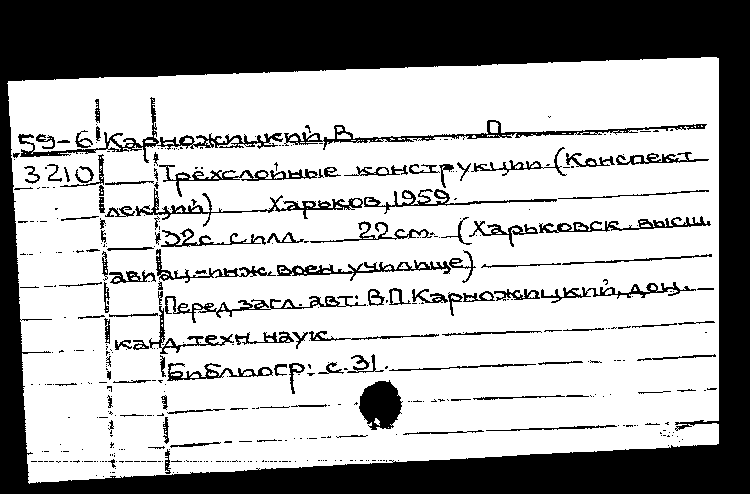 59-6 Карножицкий, В П
3210 Трёхслойные конструкции. (Конспект
лекций). Харьков, 1959.
32с. с илл. 22см. (Харьковск. высш.
авиац-инж. воен. училище).
Перед загл. авт: В.П. Карножицкий, доц.
канд. техн. наук.
Библиогр: с. 31.